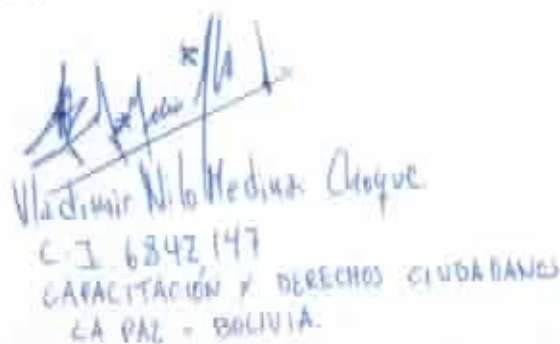 Vladimir Nilo Medina Choque
C.I 6842147
CAPACITACIÓN Y DERECHOS CIUDADANOS
LA PAZ - BOLIVIA.